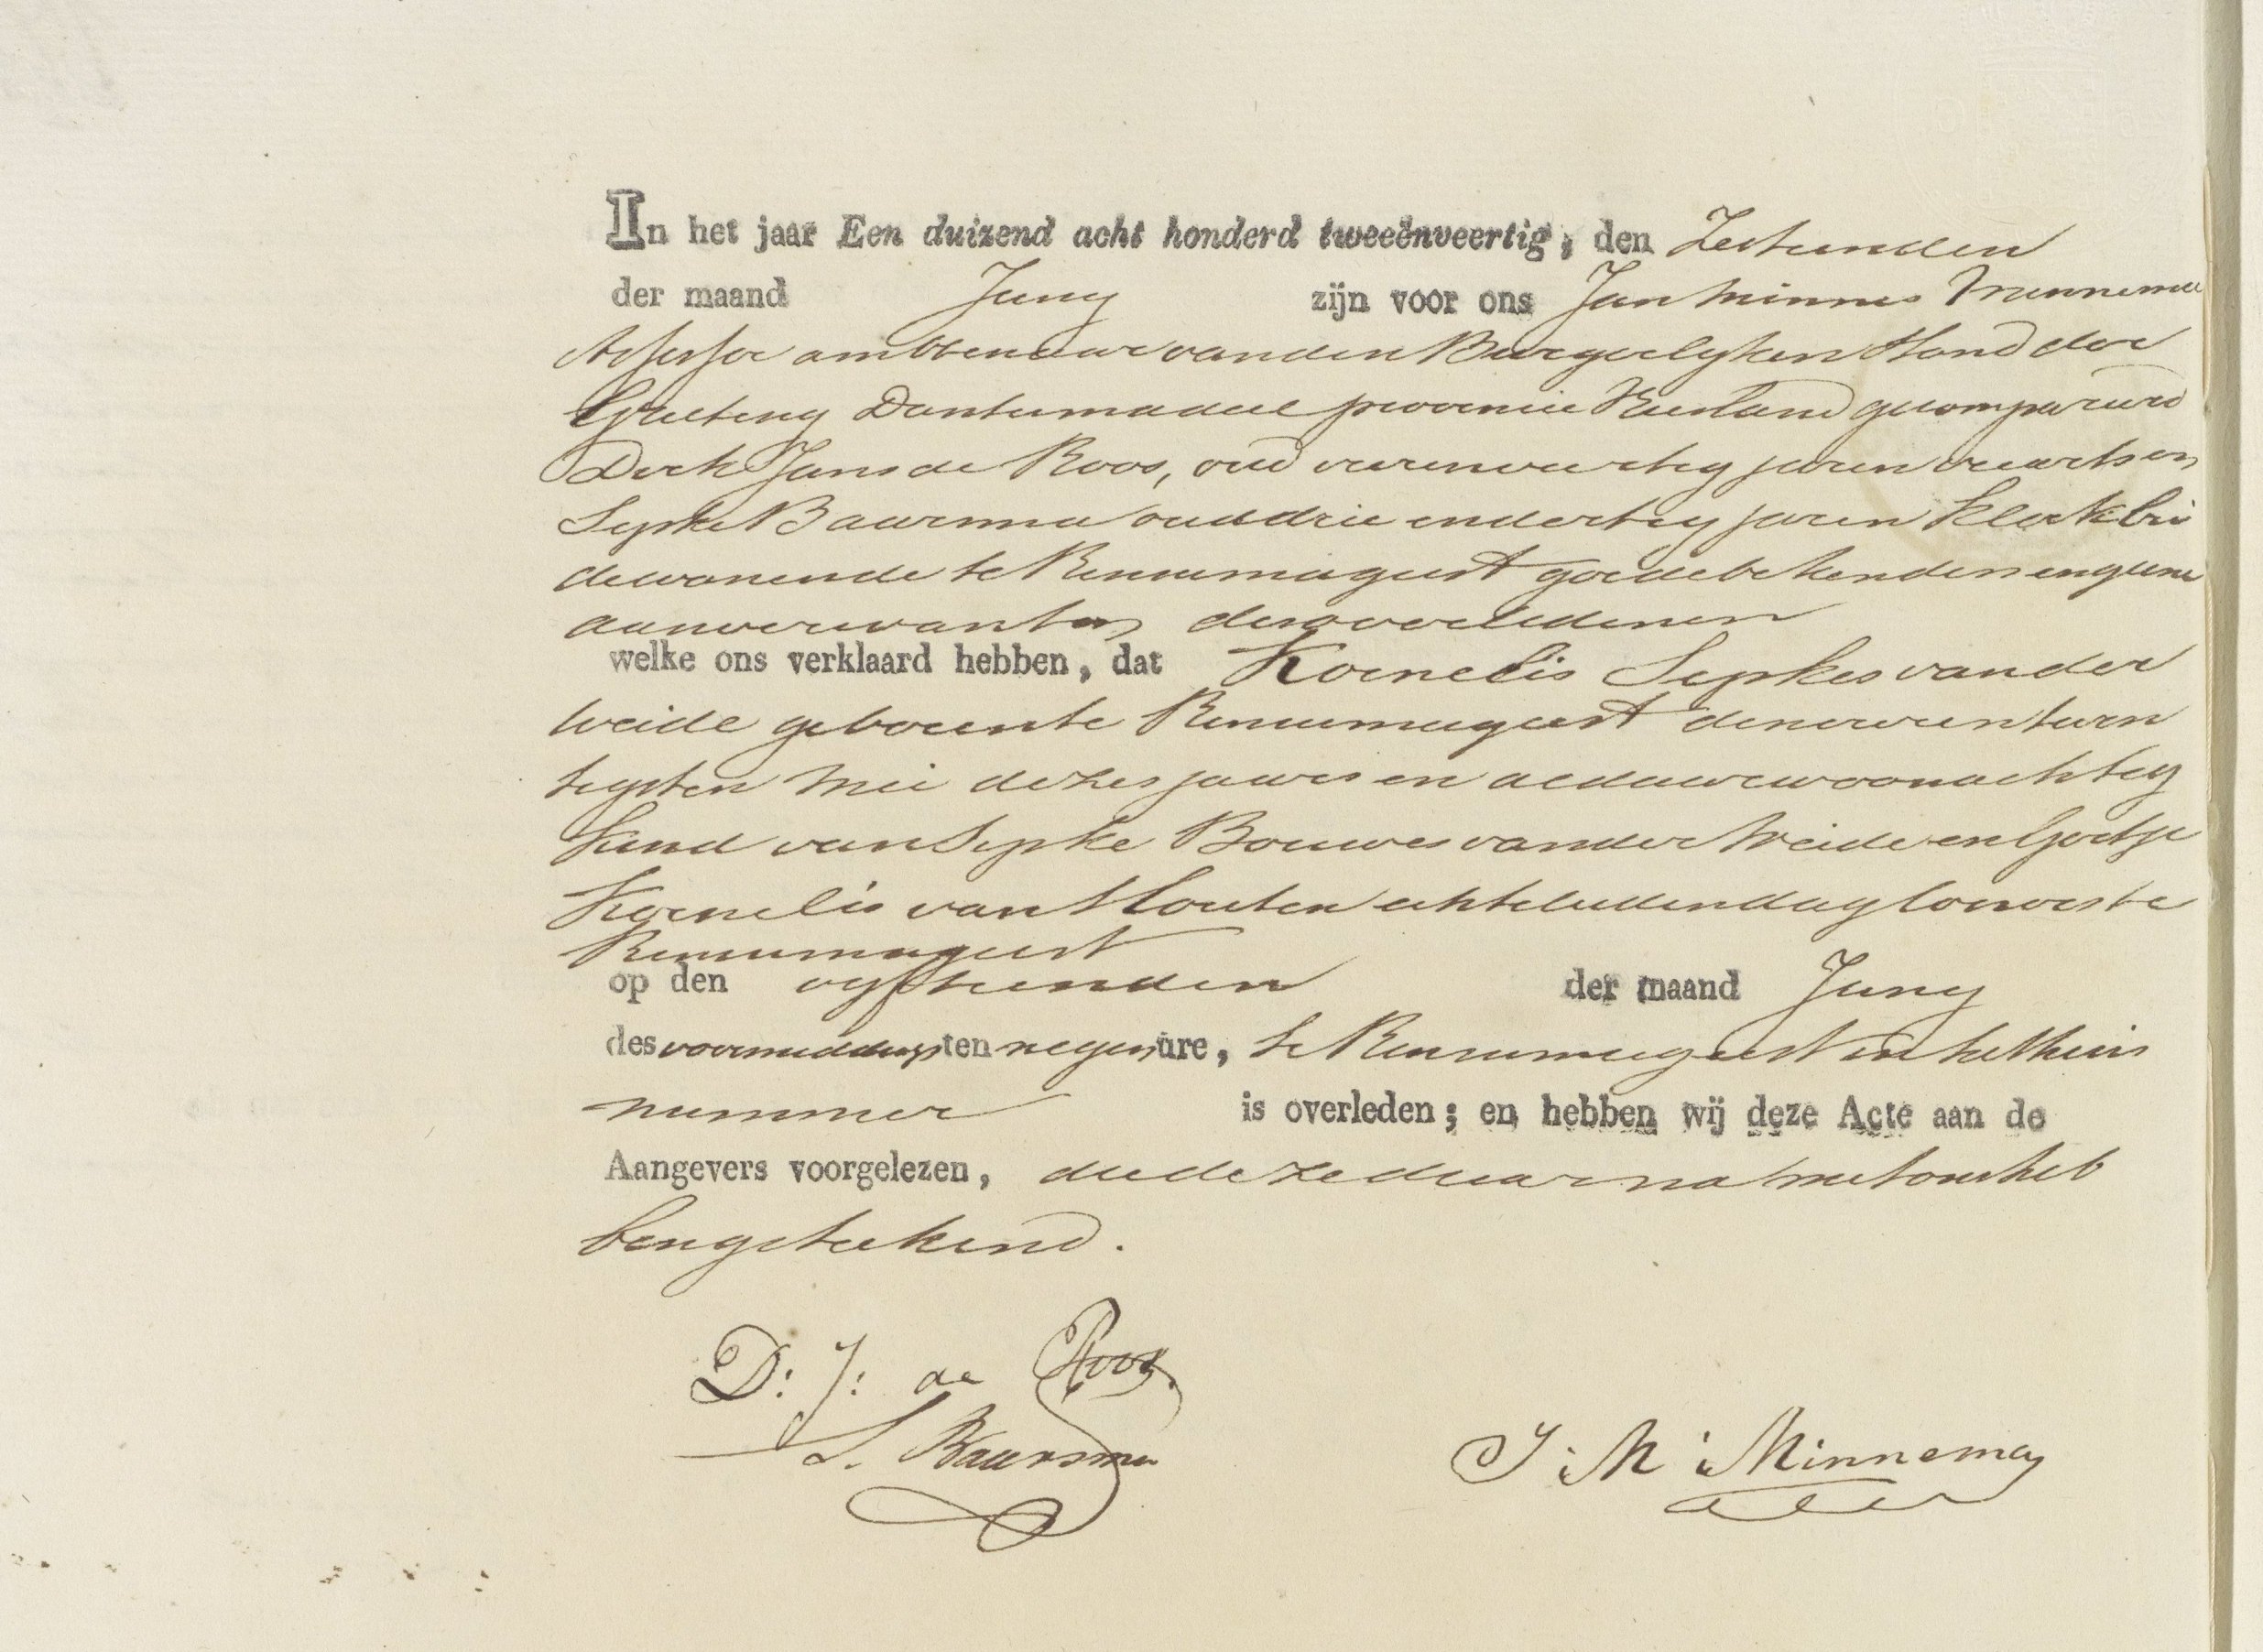 In het jaar Een duizend acht honderd tweeënveertig, den Zestienden
der maand Juny zijn voor ons Jan Minnes Minnema
Assessor ambtenaar van den Burgerlyken Stand der
Grieteny Dantumadeel provincie Friesland gecompareerd
Dirk Jans de Roos, oud vierenveertig jaren en
Sipke Baarsma oud drie en dertig jaren klerk bei
de wonende te Rinsumageest goede bekenden en geene
aanverwanten des overledenen
welke ons verklaard hebben, dat Kornelis Sipkes van der
Weide geboren te Rinsumageest den twin
tigsten Mei dezes jaars en aldaar woonachtig
kind van Sipke Bouwes van der Weide en Gertje
Kornelis van Houten echtelieden dagloners te
Rinsumageest
op den vyftienden der maand Juny
des voormiddags ten negen ure, te Rinsumageest in het huis
nummer is overleden; en hebben wij deze Acte aan de
Aangevers voorgelezen, die deze daarna met ons heb
ben geteekend.
D: J: de Roos
S. Baarsma
J: M: Minnema